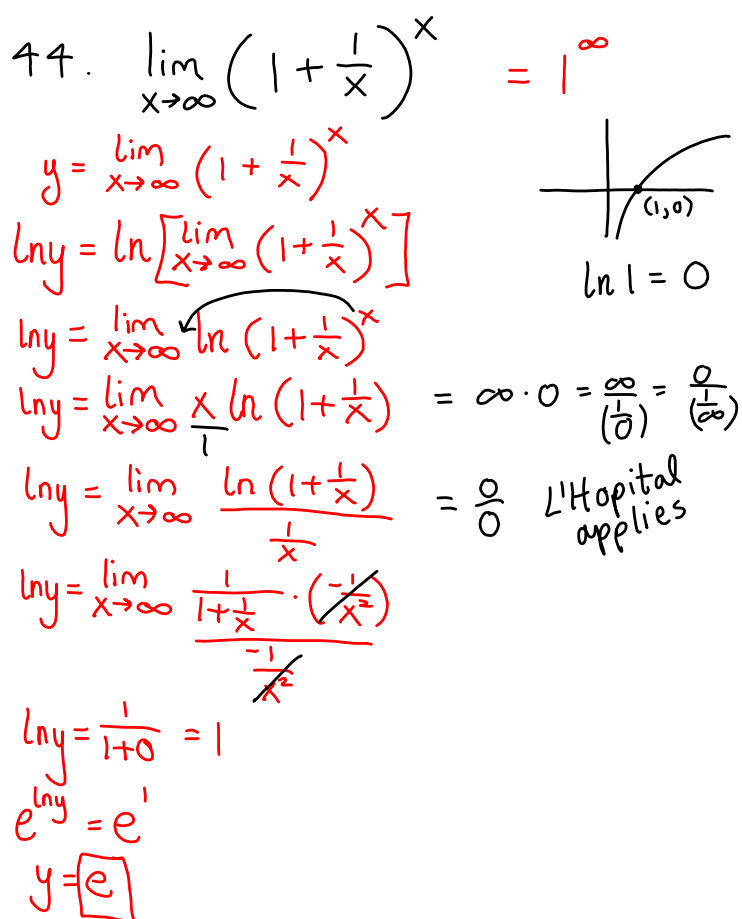 44. lim x→∞ (1 + 1/x)^x = 1^∞
y = lim x→∞ (1 + 1/x)^x
(1,0)
lny = ln[lim x→∞ (1 + 1/x)^x]
ln 1 = 0
lny = lim x→∞ ln (1 + 1/x)^x
lny = lim x→∞ x/1 ln (1 + 1/x) = ∞ · 0 = ∞/(1/0) = 0/(1/∞)
lny = lim x→∞ ln (1 + 1/x) / (1/x) = 0/0 L'Hopital
applies
lny = lim x→∞ (1/(1 + 1/x) · (-1/x²)) / (-1/x²)
lny = 1/(1+0) = 1
e^lny = e^1
y = e